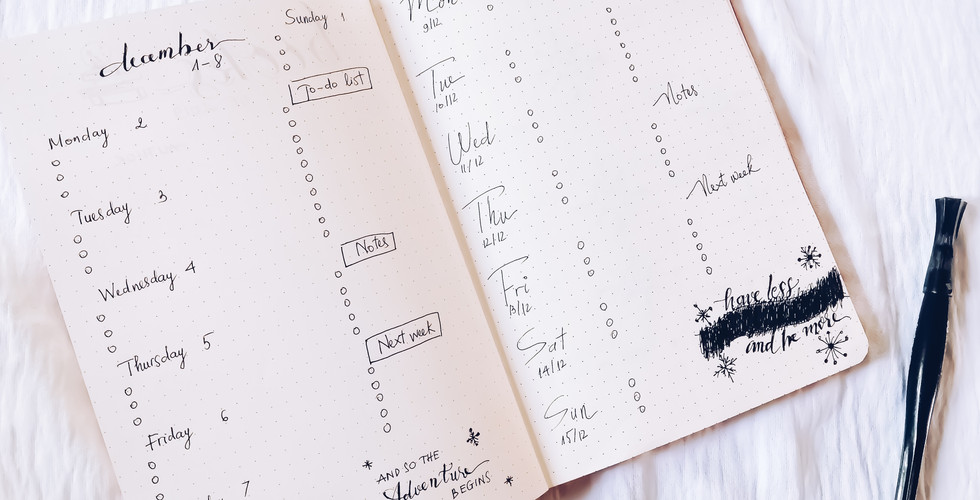 december
1-8
Monday 2
Tuesday 3
Wednesday 4
Thursday 5
Friday 6
7
Sunday 1
To-do list
Notes
Next week
AND SO THE
Adventure
BEGINS
Mon
9/12
Tue
10/12
Wed
11/12
Thu
12/12
Fri
13/12
Sat
14/12
Sun
15/12
Notes
Next week
have less
and be more